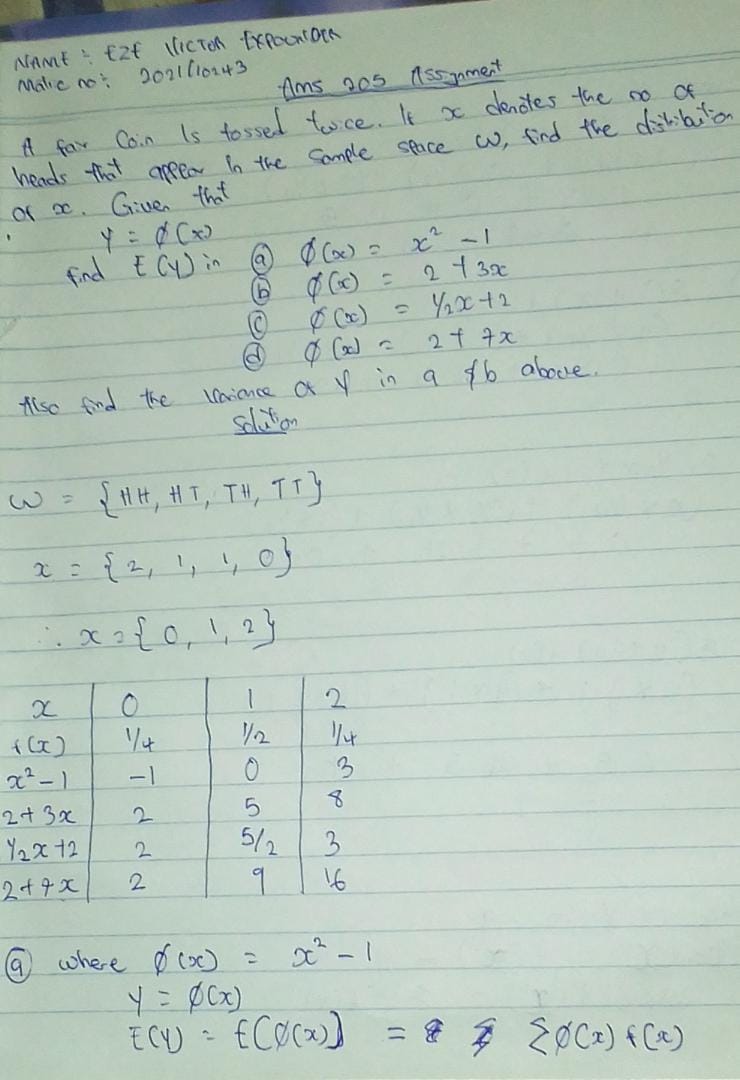 NAME: EZE VICTOR EXPOUNDER
Matric no: 2021/10243
Ams 205 Assignment
A fair Coin Is tossed twice. If x denotes the no of
heads that appear In the sample space ω, find the distribution
of x. Given that
Y = ø(x)
find E(Y) in ⓐ ø(x) = x² - 1
ⓑ ø(x) = 2 + 3x
ⓒ ø(x) = 1/2x + 2
ⓓ ø(x) = 2 + 7x
Also find the variance of Y in a & b above.
Solution
ω = {HH, HT, TH, TT}
x = {2, 1, 1, 0}
∴ x = {0, 1, 2}
x 0 1 2
f(x) 1/4 1/2 1/4
x² - 1 -1 0 3
2 + 3x 2 5 8
1/2x + 2 2 5/2 3
2 + 7x 2 9 16
ⓐ where ø(x) = x² - 1
Y = ø(x)
E(Y) = E[ø(x)] = Σø(x) f(x)